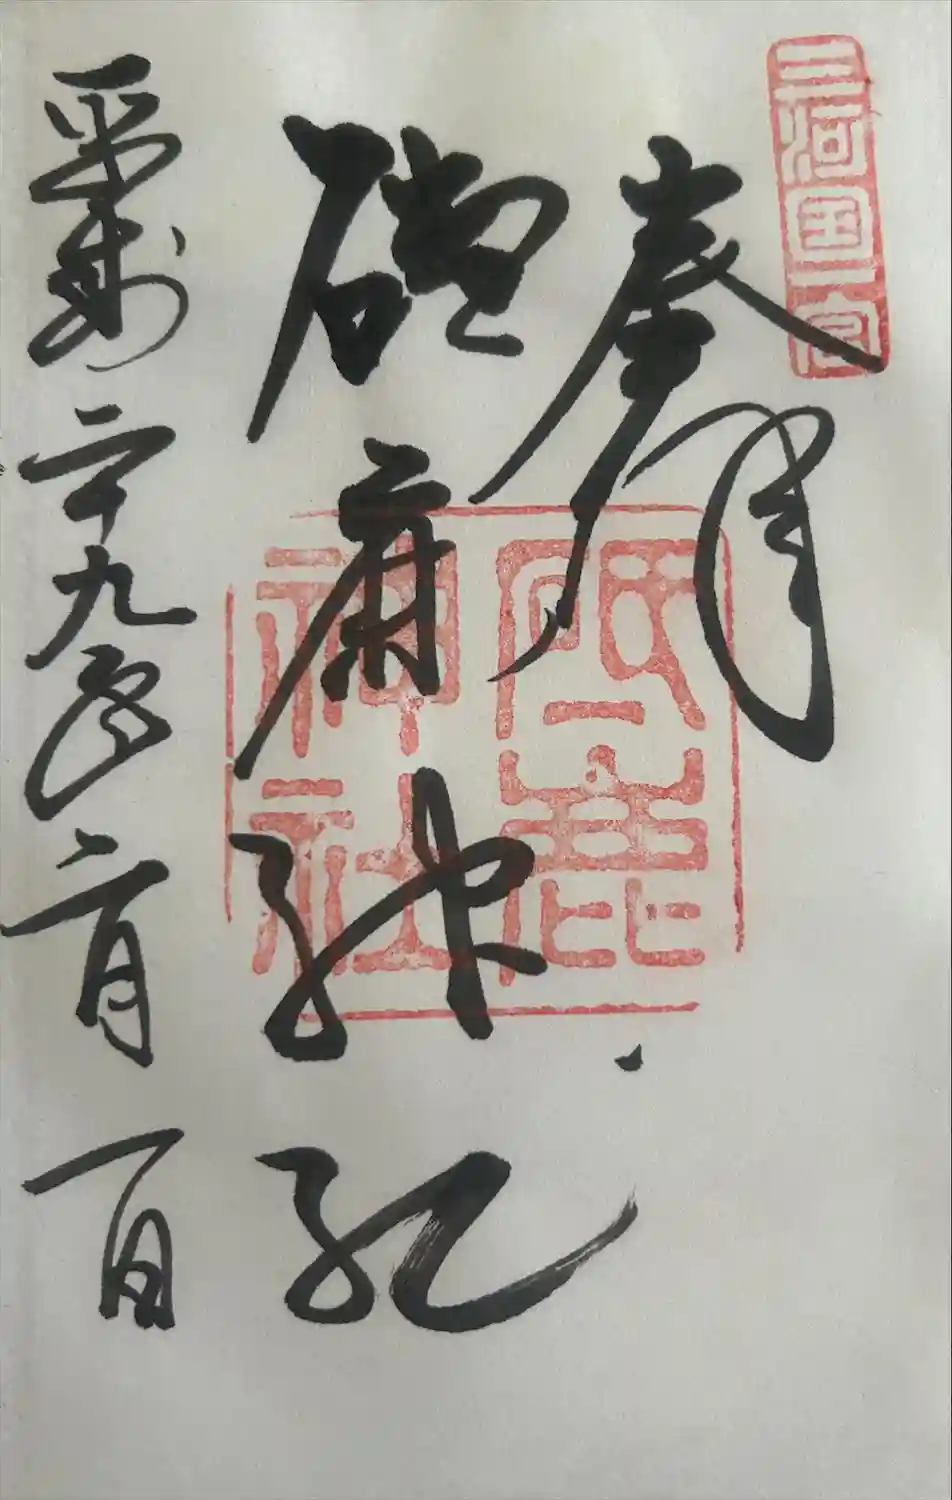 三河国一宮
奉拝
砥鹿神社
平成二十九年二月一日
砥鹿神社